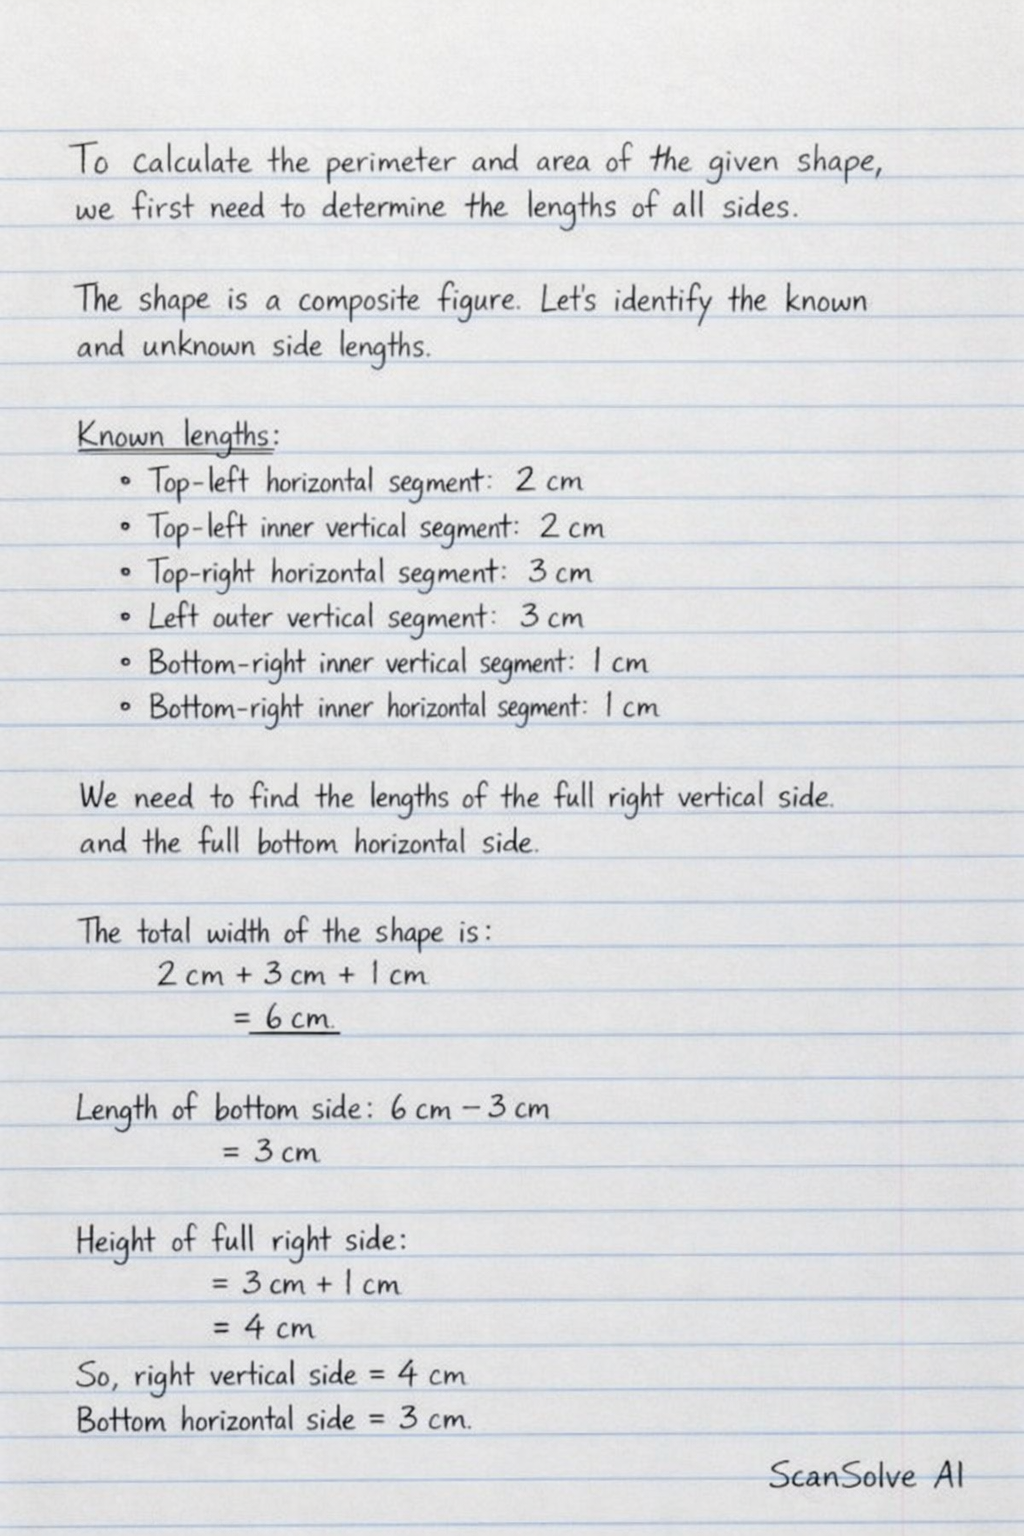 To calculate the perimeter and area of the given shape,
we first need to determine the lengths of all sides.
The shape is a composite figure. Let's identify the known
and unknown side lengths.
Known lengths:
• Top-left horizontal segment: 2 cm
• Top-left inner vertical segment: 2 cm
• Top-right horizontal segment: 3 cm
• Left outer vertical segment: 3 cm
• Bottom-right inner vertical segment: 1 cm
• Bottom-right inner horizontal segment: 1 cm
We need to find the lengths of the full right vertical side.
and the full bottom horizontal side.
The total width of the shape is:
2 cm + 3 cm + 1 cm
= 6 cm.
Length of bottom side: 6 cm – 3 cm
= 3 cm
Height of full right side:
= 3 cm + 1 cm
= 4 cm
So, right vertical side = 4 cm
Bottom horizontal side = 3 cm.
ScanSolve AI